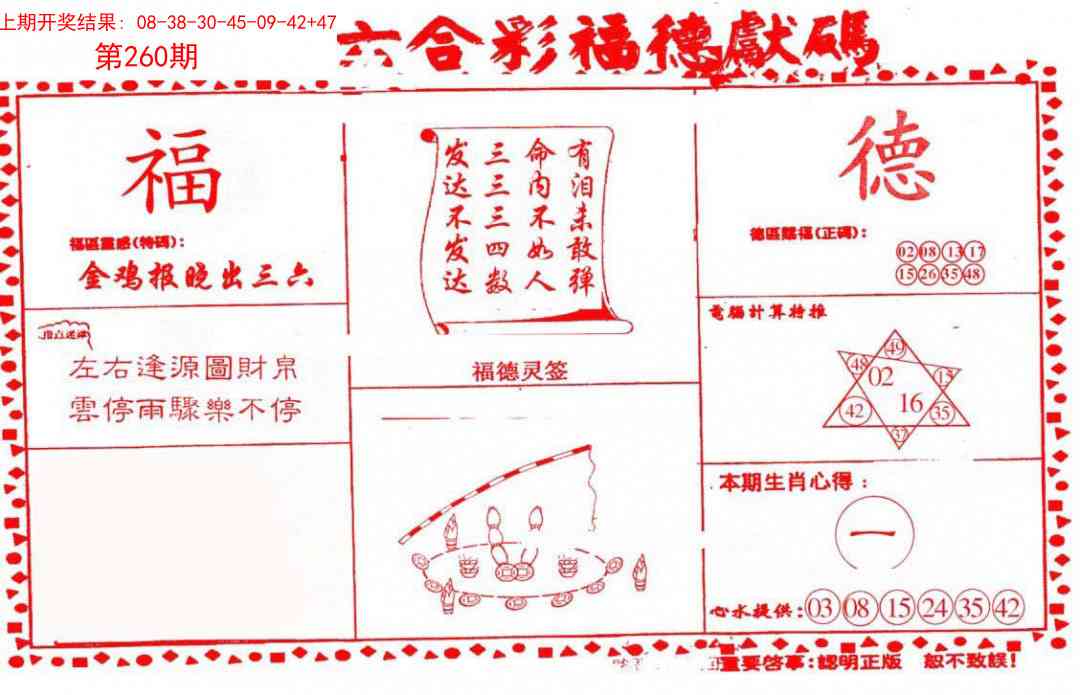 上期开奖结果：08-38-30-45-09-42+47
第260期
六合彩福德獻碼
福
福區靈感(特碼)：
金鸡报晚出三六
左右逢源圖財帛
雲停雨驟樂不停
有泪未敢弹
命内不如人
三三三四数
发达不发达
福德灵签
德
德區賜福(正碼)：
02 08 13 17
15 26 35 48
電腦計算特推
49
48 02 15
42 16 35
37
本期生肖心得：
一
心水提供：03 08 15 24 35 42
重要啓事：認明正版 恕不致誤！